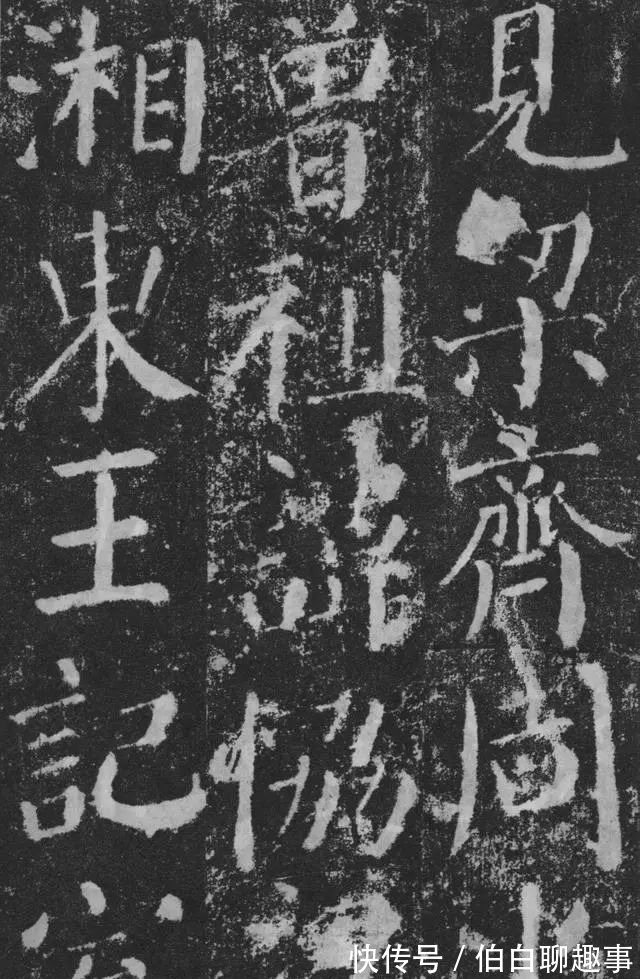 見梁齊周
曾祖諱協
湘東王記室
快传号 / 伯白聊趣事